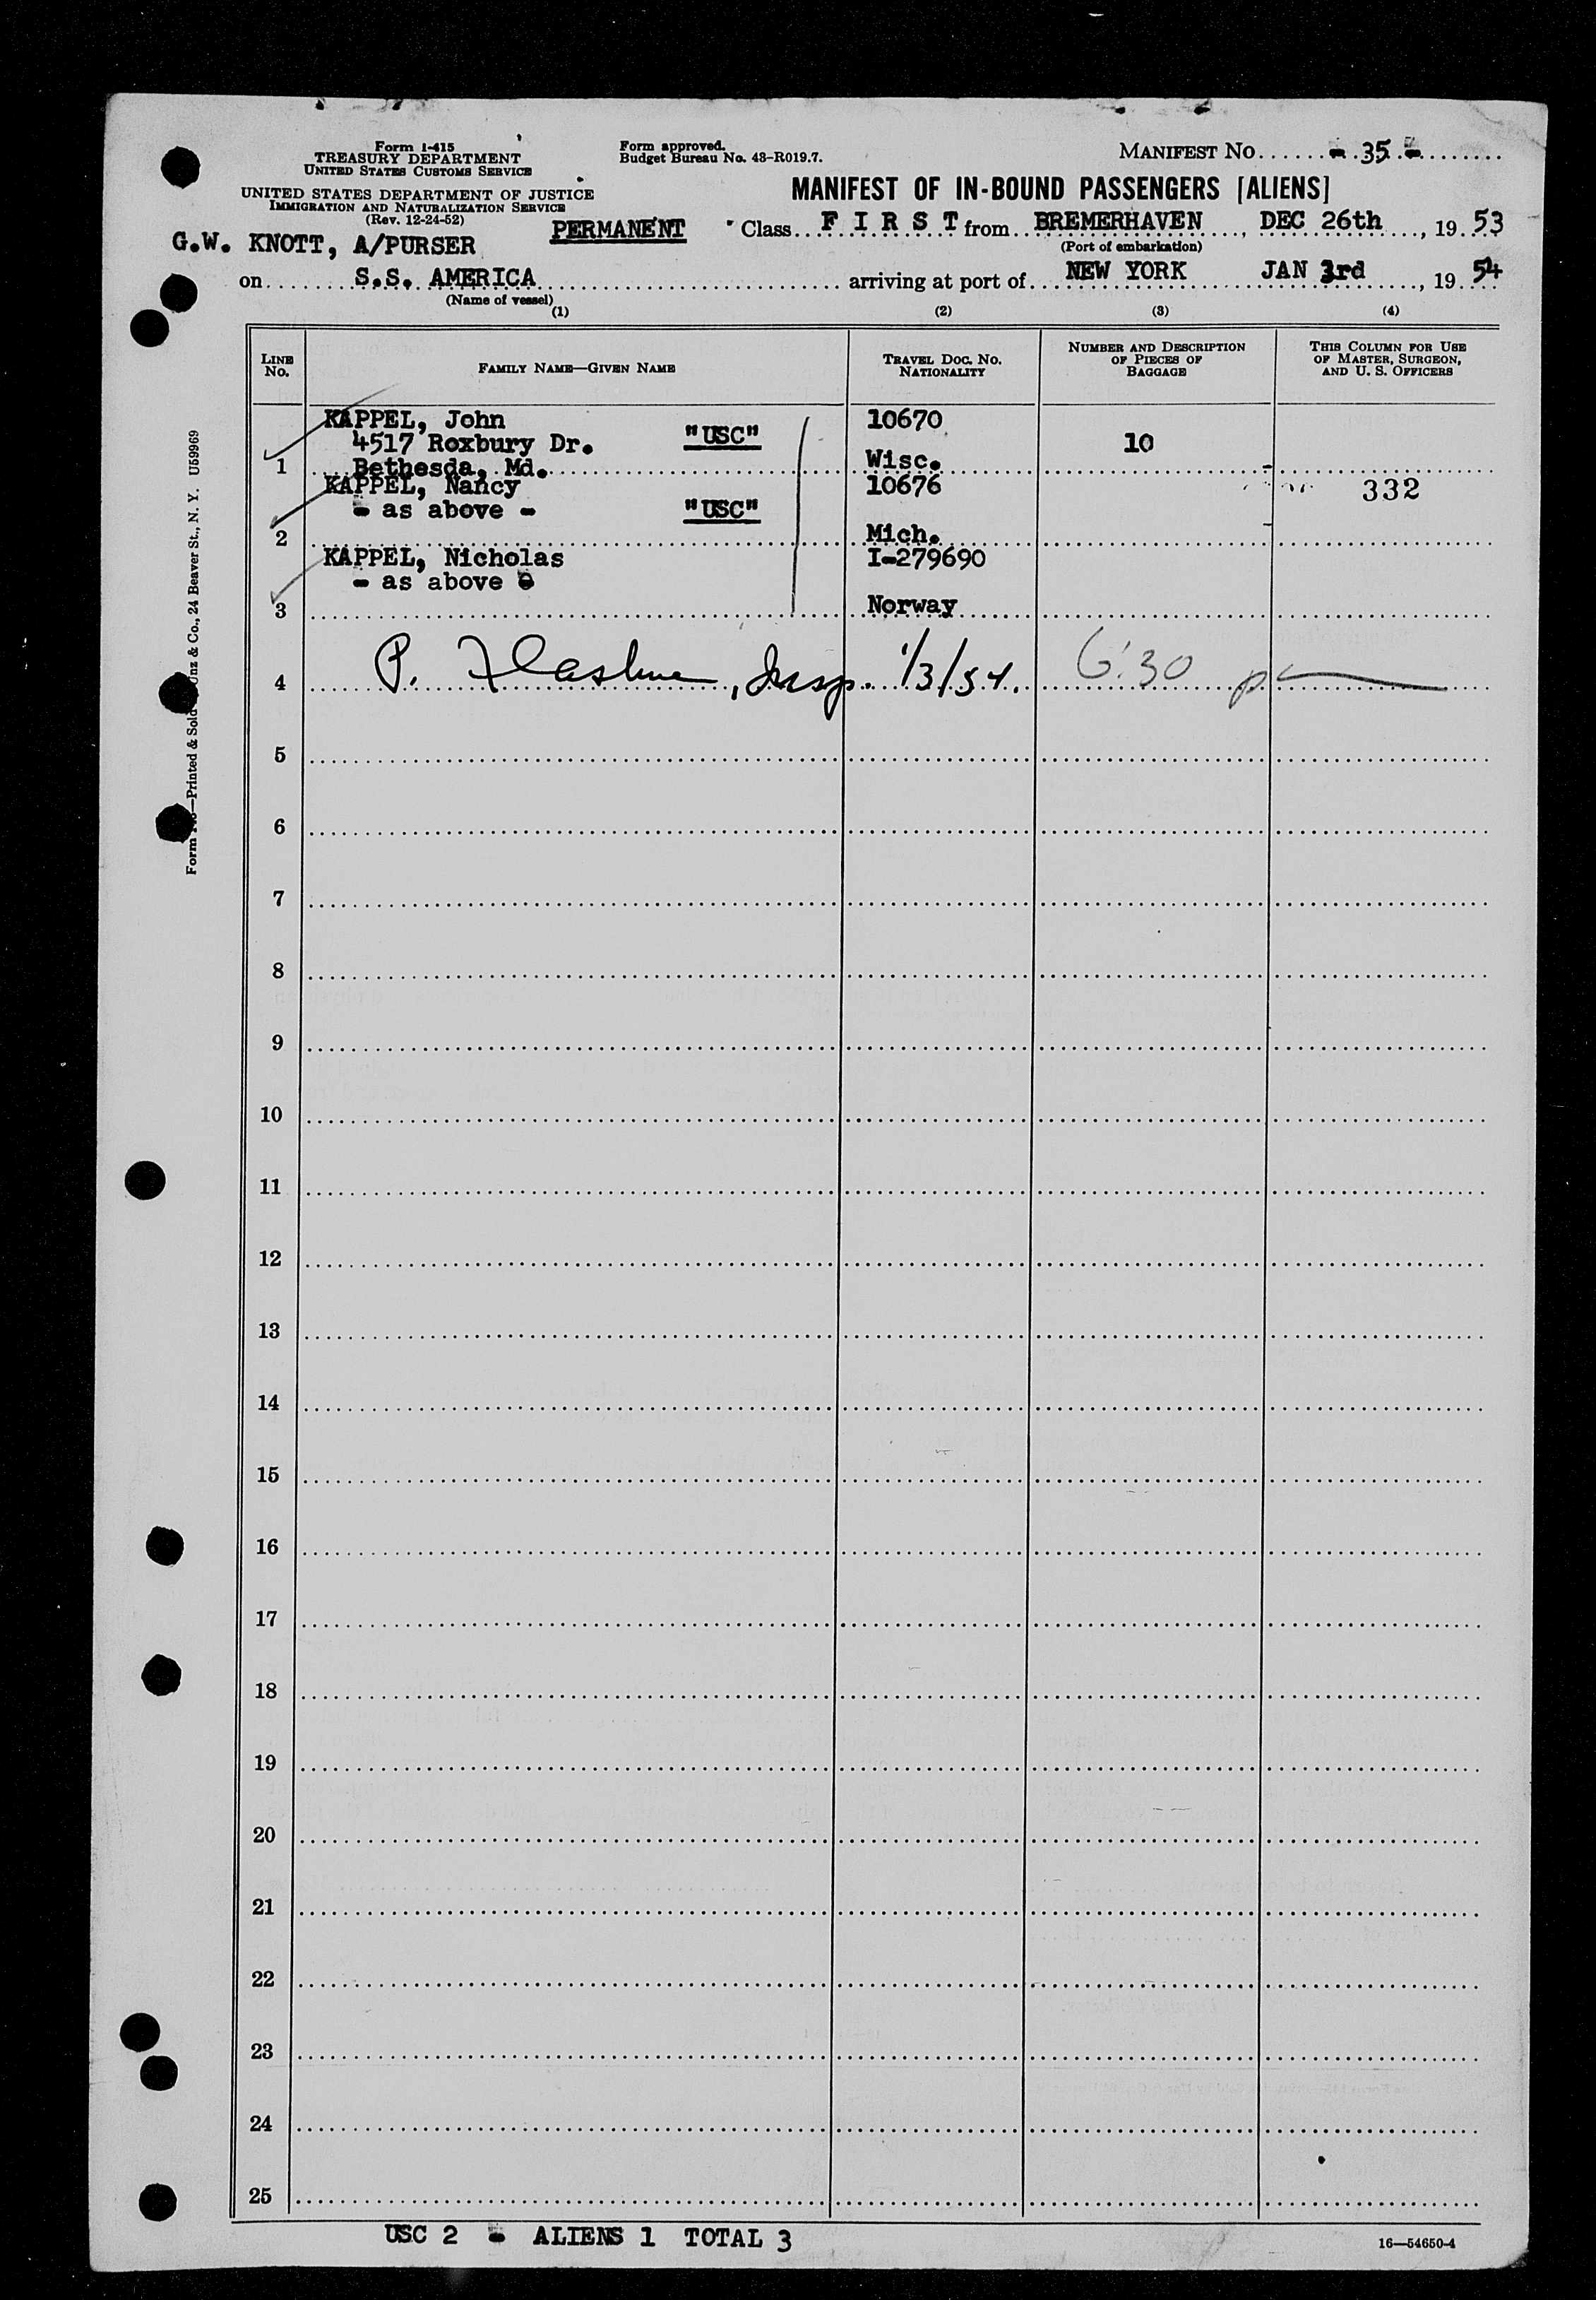 Form I-415
TREASURY DEPARTMENT
UNITED STATES CUSTOMS SERVICE
UNITED STATES DEPARTMENT OF JUSTICE
IMMIGRATION AND NATURALIZATION SERVICE
(Rev. 12-24-52)
Form approved.
Budget Bureau No. 43-R019.7.
MANIFEST NO. - 35 -
MANIFEST OF IN-BOUND PASSENGERS [ALIENS]
G.W. KNOTT, A/PURSER
PERMANENT Class F I R S T from BREMERHAVEN, DEC 26th, 19 53
(Port of embarkation)
on S.S. AMERICA arriving at port of NEW YORK JAN 3rd, 19 54
(Name of vessel)
(1) (2) (3) (4)
LINE NO.
FAMILY NAME—GIVEN NAME
TRAVEL DOC. NO. NATIONALITY
NUMBER AND DESCRIPTION OF PIECES OF BAGGAGE
THIS COLUMN FOR USE OF MASTER, SURGEON, AND U. S. OFFICERS
KAPPEL, John 10670
4517 Roxbury Dr. "USC" 10
1 Bethesda, Md. Wisc.
KAPPEL, Nancy 10676 332
- as above - "USC"
2 Mich.
KAPPEL, Nicholas I-279690
- as above
3 Norway
4 P. , Insp. 1/3/54. 6:30 p
5
6
7
8
9
10
11
12
13
14
15
16
17
18
19
20
21
22
23
24
25
USC 2 - ALIENS 1 TOTAL 3
16—54650-4
Form —Printed & Sold Unz & Co., 24 Beaver St., N. Y. U59969